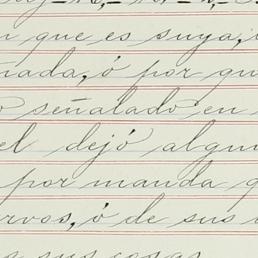 que es suya,
ñada, ó por
señalado en
el dejó algu
por manda
rvos, ó de sus
sus cosas